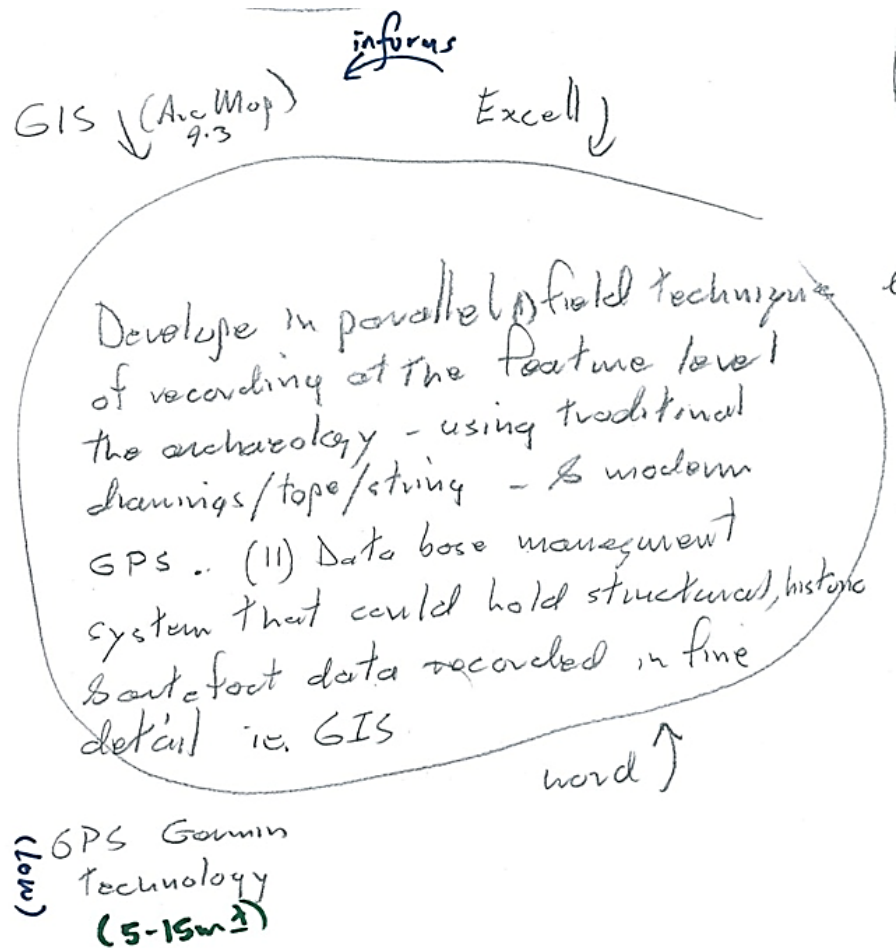 informs
GIS ↓ (Arc Map)
9.3
Excell ↓
Develope in parallel (I) field technique
of recording at the feature level
the archaeology - using traditinal
drawings/tape/string - & modern
GPS. (II) Data base managment
system that could hold structural, historic
& artefact data recorded in fine
detail ie. GIS
word ↑
GPS Garmin
Technology
(low)
(5-15m ±)